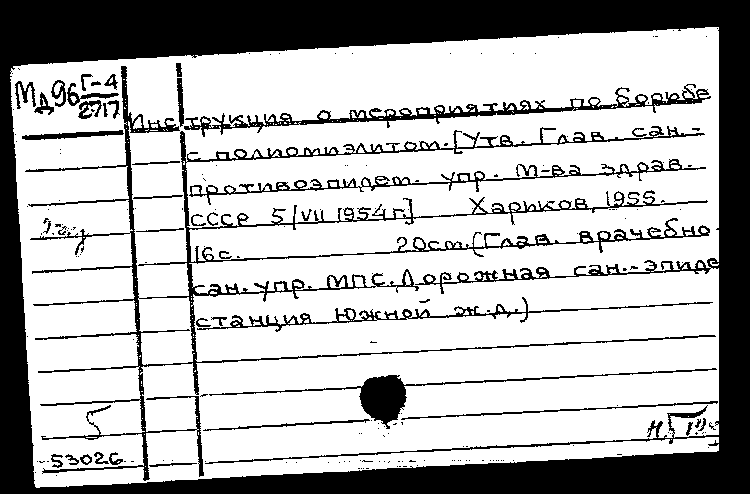 Мд96 Г-4
2717
Инструкция о мероприятиях по борьбе
с полиомиэлитом. [Утв. Глав. сан.-
противоэпидем. упр. М-ва здрав.
СССР 5/VII 1954 г.] Харьков, 1955.
16с. 20см. (Глав. врачебно-
сан. упр. МПС. Дорожная сан.-эпиде
станция Южной ж.д.)
5
53026